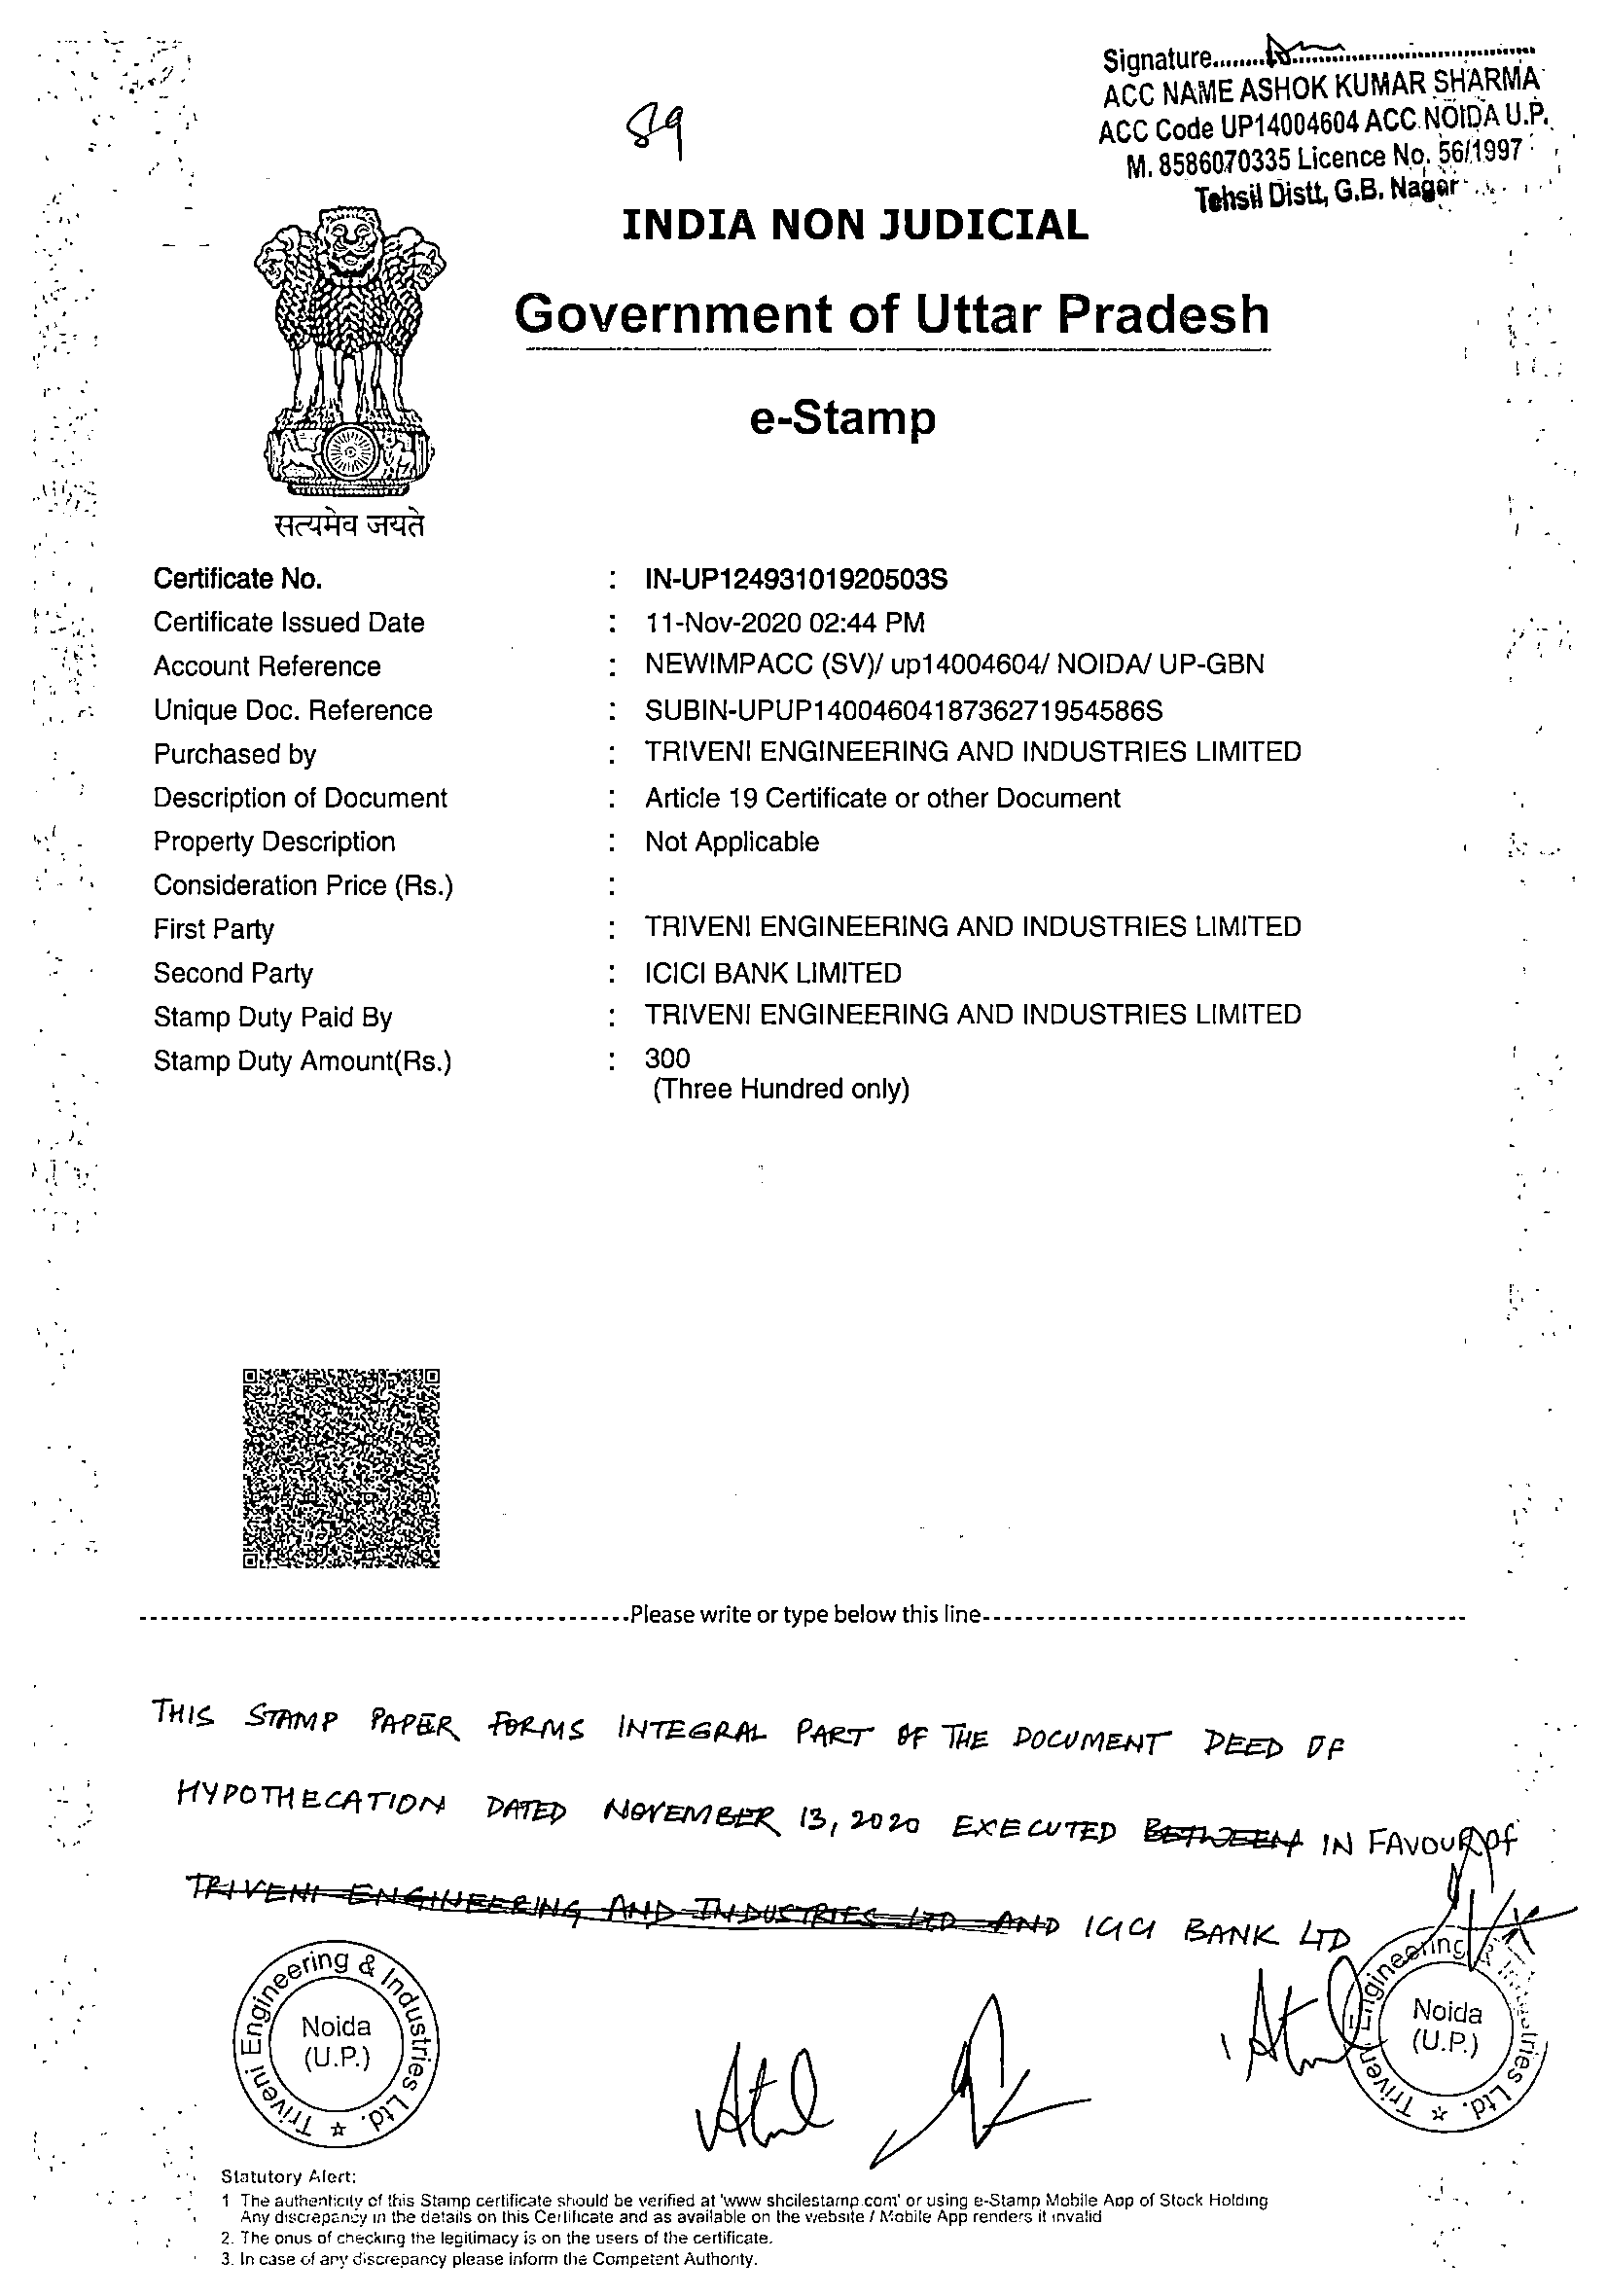 Signature
ACC NAME ASHOK KUMAR SHARMA
ACC Code UP14004604 ACC NOIDA U.P.
M. 8586070335 Licence No. 56/1997
Tehsil Distt, G.B. Nagar
89
INDIA NON JUDICIAL
Government of Uttar Pradesh
e-Stamp
सत्यमेव जयते
Certificate No. : IN-UP12493101920503S
Certificate Issued Date : 11-Nov-2020 02:44 PM
Account Reference : NEWIMPACC (SV)/ up14004604/ NOIDA/ UP-GBN
Unique Doc. Reference : SUBIN-UPUP1400460418736271954586S
Purchased by : TRIVENI ENGINEERING AND INDUSTRIES LIMITED
Description of Document : Article 19 Certificate or other Document
Property Description : Not Applicable
Consideration Price (Rs.) :
First Party : TRIVENI ENGINEERING AND INDUSTRIES LIMITED
Second Party : ICICI BANK LIMITED
Stamp Duty Paid By : TRIVENI ENGINEERING AND INDUSTRIES LIMITED
Stamp Duty Amount(Rs.) : 300
(Three Hundred only)
Please write or type below this line
THIS STAMP PAPER FORMS INTEGRAL PART OF THE DOCUMENT DEED OF
HYPOTHECATION DATED NOVEMBER 13, 2020 EXECUTED BETWEEN IN FAVOUR OF
TRIVENI ENGINEERING AND INDUSTRIES LTD AND ICICI BANK LTD
Triveni Engineering & Industries Ltd.
Noida
(U.P.)
Atul
Atul
Triveni Engineering & Industries Ltd.
Noida
(U.P.)
Statutory Alert:
1 The authenticity of this Stamp certificate should be verified at 'www shcilestamp.com' or using e-Stamp Mobile App of Stock Holding
Any discrepancy in the details on this Certificate and as available on the website / Mobile App renders it invalid
2. The onus of checking the legitimacy is on the users of the certificate.
3. In case of any discrepancy please inform the Competent Authority.